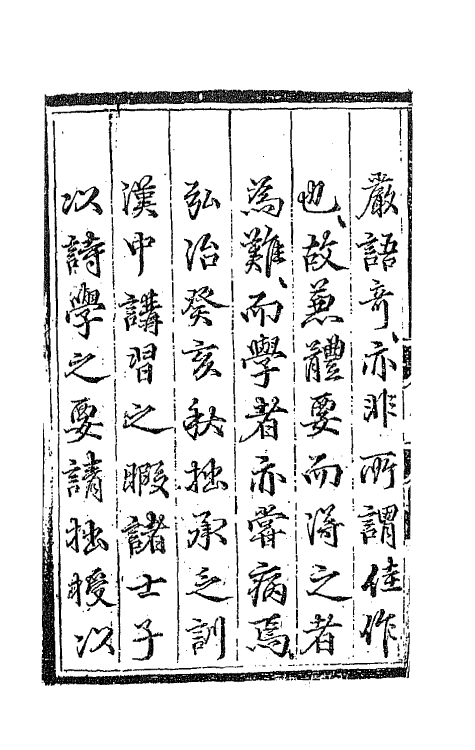 嚴語竒、亦非所謂佳作
也、故兼體要而得之者
為難、而學者亦嘗病焉、
弘治癸亥秋拙承乏訓
漢中講習之暇諸士子
以詩學之要請拙授以